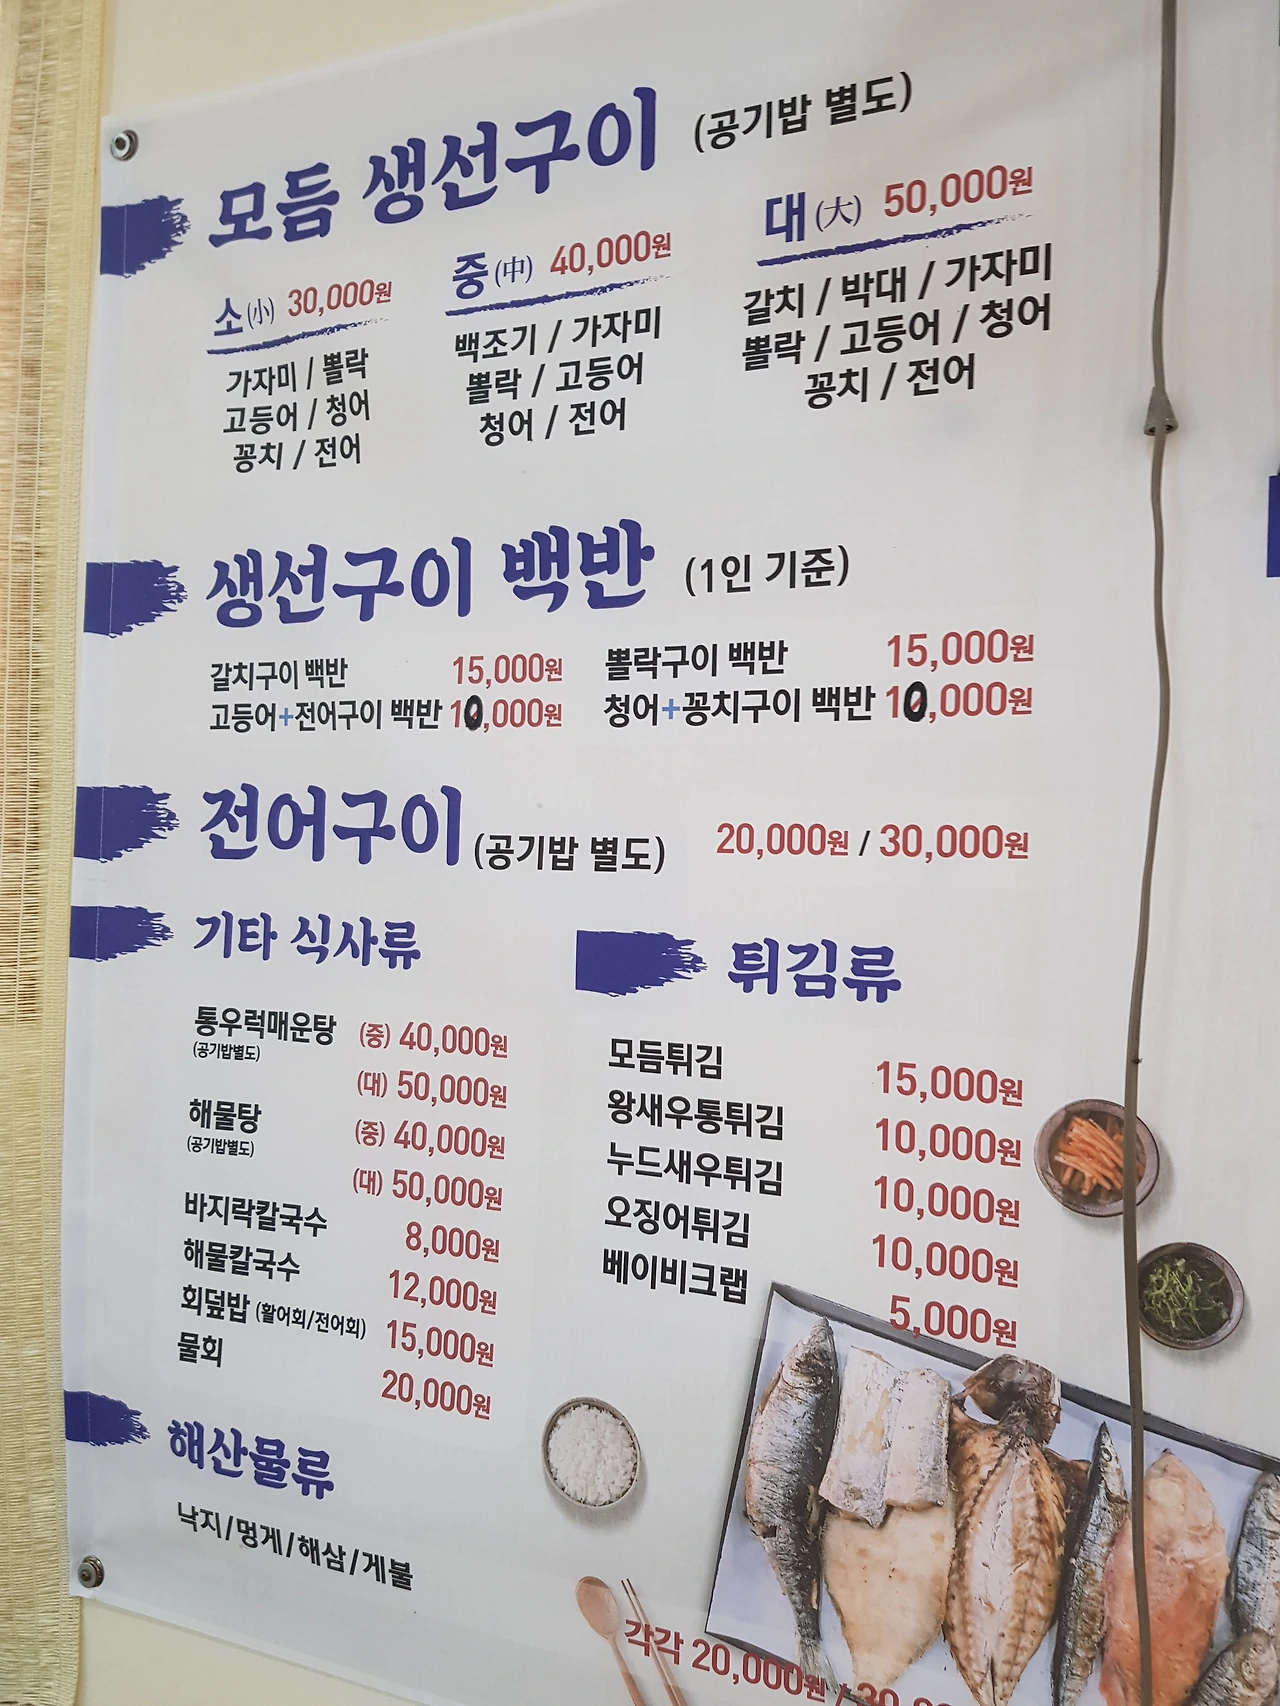 모듬 생선구이 (공기밥 별도)
소(小) 30,000원
가자미 / 뽈락
고등어 / 청어
꽁치 / 전어
중(中) 40,000원
백조기 / 가자미
뽈락 / 고등어
청어 / 전어
대(大) 50,000원
갈치 / 박대 / 가자미
뽈락 / 고등어 / 청어
꽁치 / 전어
생선구이 백반 (1인 기준)
갈치구이 백반 15,000원
고등어+전어구이 백반 10,000원
뽈락구이 백반 15,000원
청어+꽁치구이 백반 10,000원
전어구이 (공기밥 별도) 20,000원 / 30,000원
기타 식사류
통우럭매운탕 (중) 40,000원
(공기밥별도)
(대) 50,000원
해물탕 (중) 40,000원
(공기밥별도)
(대) 50,000원
바지락칼국수 8,000원
해물칼국수 12,000원
회덮밥 (활어회/전어회) 15,000원
물회 20,000원
튀김류
모듬튀김 15,000원
왕새우통튀김 10,000원
누드새우튀김 10,000원
오징어튀김 10,000원
베이비크랩 5,000원
해산물류
낙지/멍게/해삼/게불
각각 20,000원 /